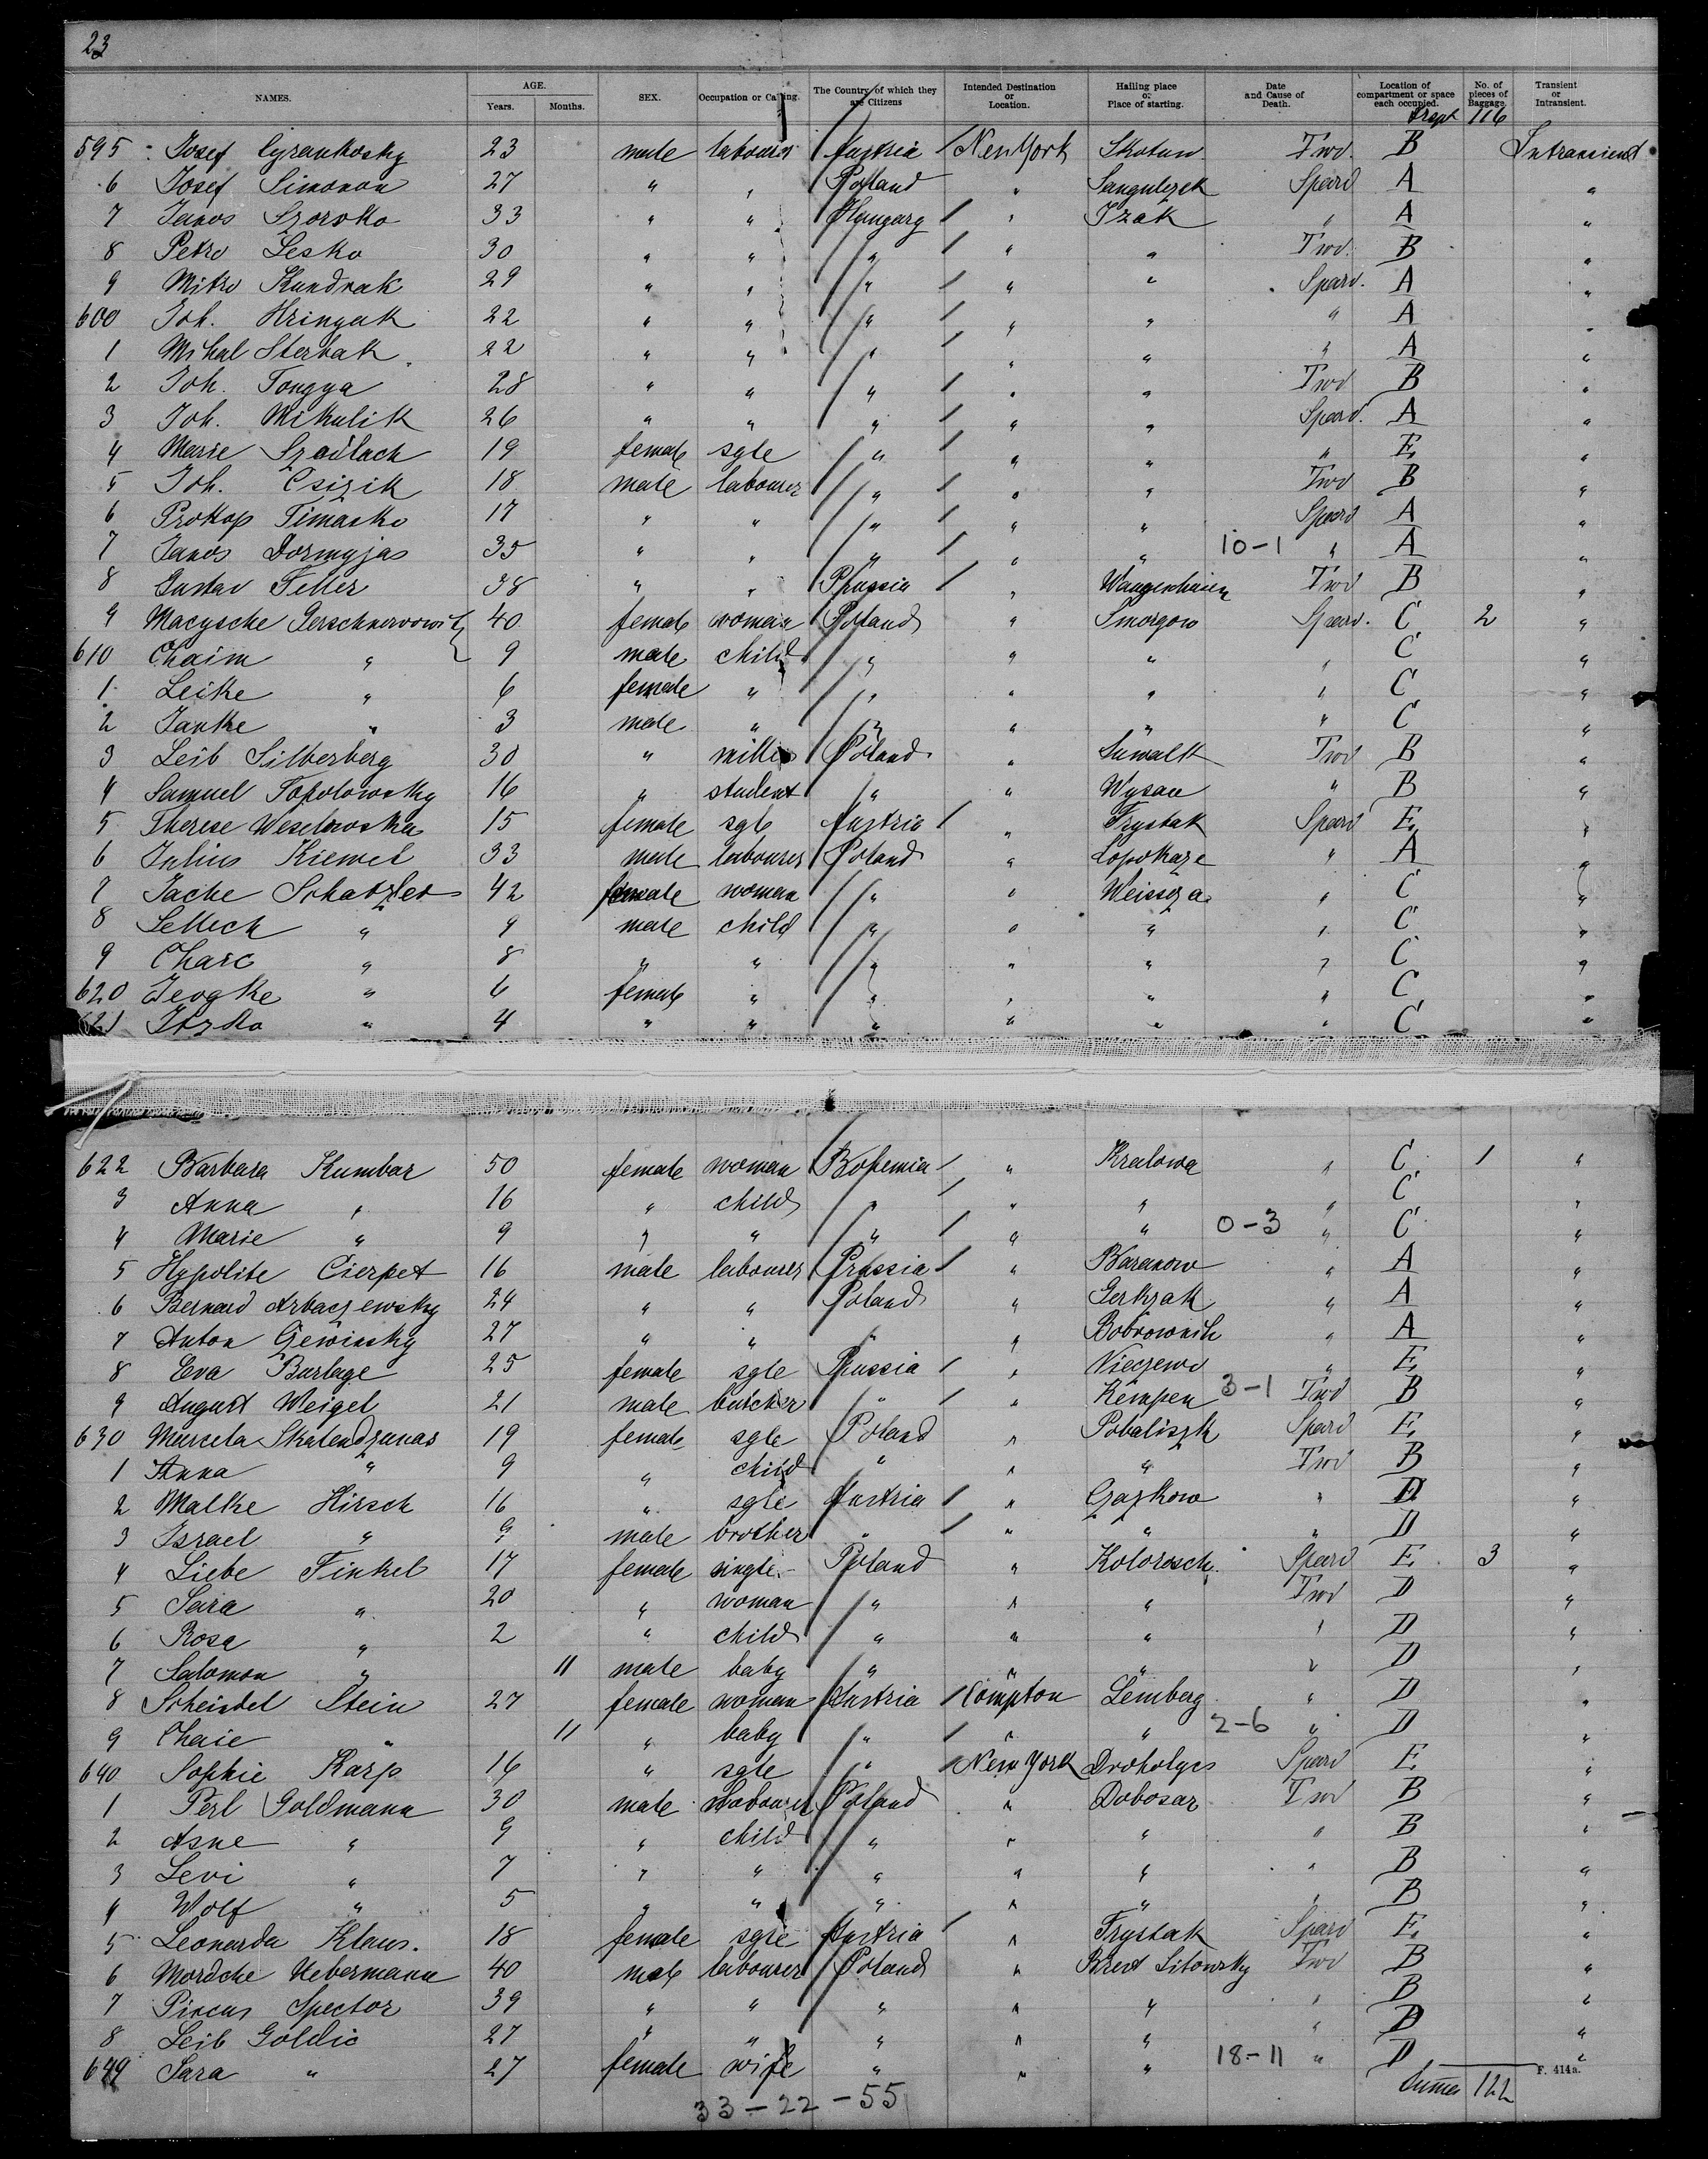 23
NAMES. AGE. Years. Months. SEX. Occupation or Calling. The Country of which they are Citizens Intended Destination or Location. Hailing place or Place of starting. Date and Cause of Death. Location of compartment or space each occupied. No. of pieces of Baggage. Transient or Intransient.
116
595 Josef Cyrankosky 23 male labourer Austria New York Skotun Twd. B Intransient
6 Josef Simonon 27 " " Poland " Spard A "
7 Janos 33 " " Hungary " Izak " A "
8 Petro Lesko 30 " " " " " Twd. B "
9 Mitro Kundrak 29 " " " " " Spard. A "
600 Joh. Hringak 22 " " " " " " A "
1 Mihal Sterbak 22 " " " " " " A "
2 Joh. Tongya 28 " " " " " Twd B "
3 Joh. Mikulik 26 " " " " " Spard. A "
4 Marie Szadlach 19 female sgle " " " " E "
5 Joh. Csizik 18 male labourer " " " Twd B "
6 Prokop Timasko 17 " " " " " Spard A "
7 Janos Dormyjas 35 " " " " " 10-1 " A "
8 Gustav Feller 38 " " Prussia " Twd B "
9 Macysche 40 female woman Poland " Smorgow Spard. C 2 "
610 Chaim " 9 male child " " " " C "
1 Leike " 6 female " " " " " C "
2 Janke " 3 male " " " " " C "
3 Leib Silberberg 30 " Poland " Suwalk Twd B "
4 Samuel Topolowsky 16 " student " " Wysau " B "
5 Therese Weselowska 15 female sgle Austria " Frystak Spard E "
6 Julius Kiemel 33 male labourer Poland " " A "
7 Jache Schatzler 42 female woman " " " C "
8 Sellech " 9 male child " " " " C "
9 Charc " 8 " " " " " " C "
620 Jeogke " 6 female " " " " " C "
621 Itzko " 4 " " " " " " C "
622 Barbara Kumbar 50 female woman Bohemia " Kralowa " C 1 "
3 Anna " 16 " child " " " " C "
4 Marie " 9 " " " " " 0-3 " C "
5 Hypolite Cierpet 16 male labourer Prussia " Baranow " A "
6 Bernard Arbaczewsky 24 " " Poland " " A "
7 Anton Gewinsky 27 " " " " Bobrownik " A "
8 Eva Burlage 25 female sgle Prussia " Nieczewo " E "
9 August Weigel 21 male butcher " " Kempen 3-1 Twd B "
630 Murcela Skalendzunas 19 female sgle Poland " Pobaliszk Spard E "
1 Anna " 9 " child " " " Twd B "
2 Malke Hirsch 16 " sgle Austria " Gazkow " D "
3 Israel " 9 male brother " " " " D "
4 Liebe Finkel 17 female single Poland " Kolorosch Spard E 3 "
5 Sara " 20 " woman " " " Twd D "
6 Rosa " 2 " child " " " " D "
7 Salomon " 11 male baby " " " " D "
8 Scheindel Stein 27 female woman Austria Compton Lemberg " D "
9 Chaie " 11 " baby " " " 2-6 " D "
640 Sophie Karp 16 " sgle " New York Spard E "
1 Perl Goldmann 30 male labourer Poland " Dobosar Twd B "
2 Asne " 9 " child " " " " B "
3 Levi " 7 " " " " " " B "
4 Wolf " 5 " " " " " " B "
5 Leonarda Klaus. 18 female sgle Austria " Frystak Spard E "
6 Mordche Uebermann 40 male labourer Poland " Brest Litowsky Twd B "
7 Pincus Spector 39 " " " " " " B "
8 Leib Goldic 27 " " " " " " D "
649 Sara " 27 female wife " " " 18-11 " D "
F. 414a.
Summa 122
33-22-55